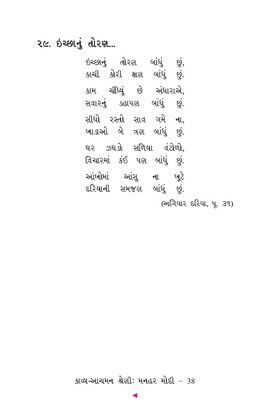 ૨૯. ઇચ્છાનું તોરણ...
ઇચ્છાનું તોરણ બાંધું છું,
કાચી કોરી ક્ષણ બાંધું છું.
કામ ચીંધ્યું છે અંધારાએ,
સવારનું ડહાપણ બાંધું છું.
સીધો રસ્તો સાવ ગમે ના,
ખાડાઓ બે ત્રણ બાંધું છું.
ઘર ઝઘડો સળિયા વંટોળો,
વિચારમાં કંઈ પણ બાંધું છું.
આંખોમાં આંસુ ના ખૂટે
દરિયાની સમજણ બાંધું છું.
(અગિયાર દરિયા, પૃ. ૩૧)
કાવ્ય-આચમન શ્રેણી: મનહર મોદી – 38